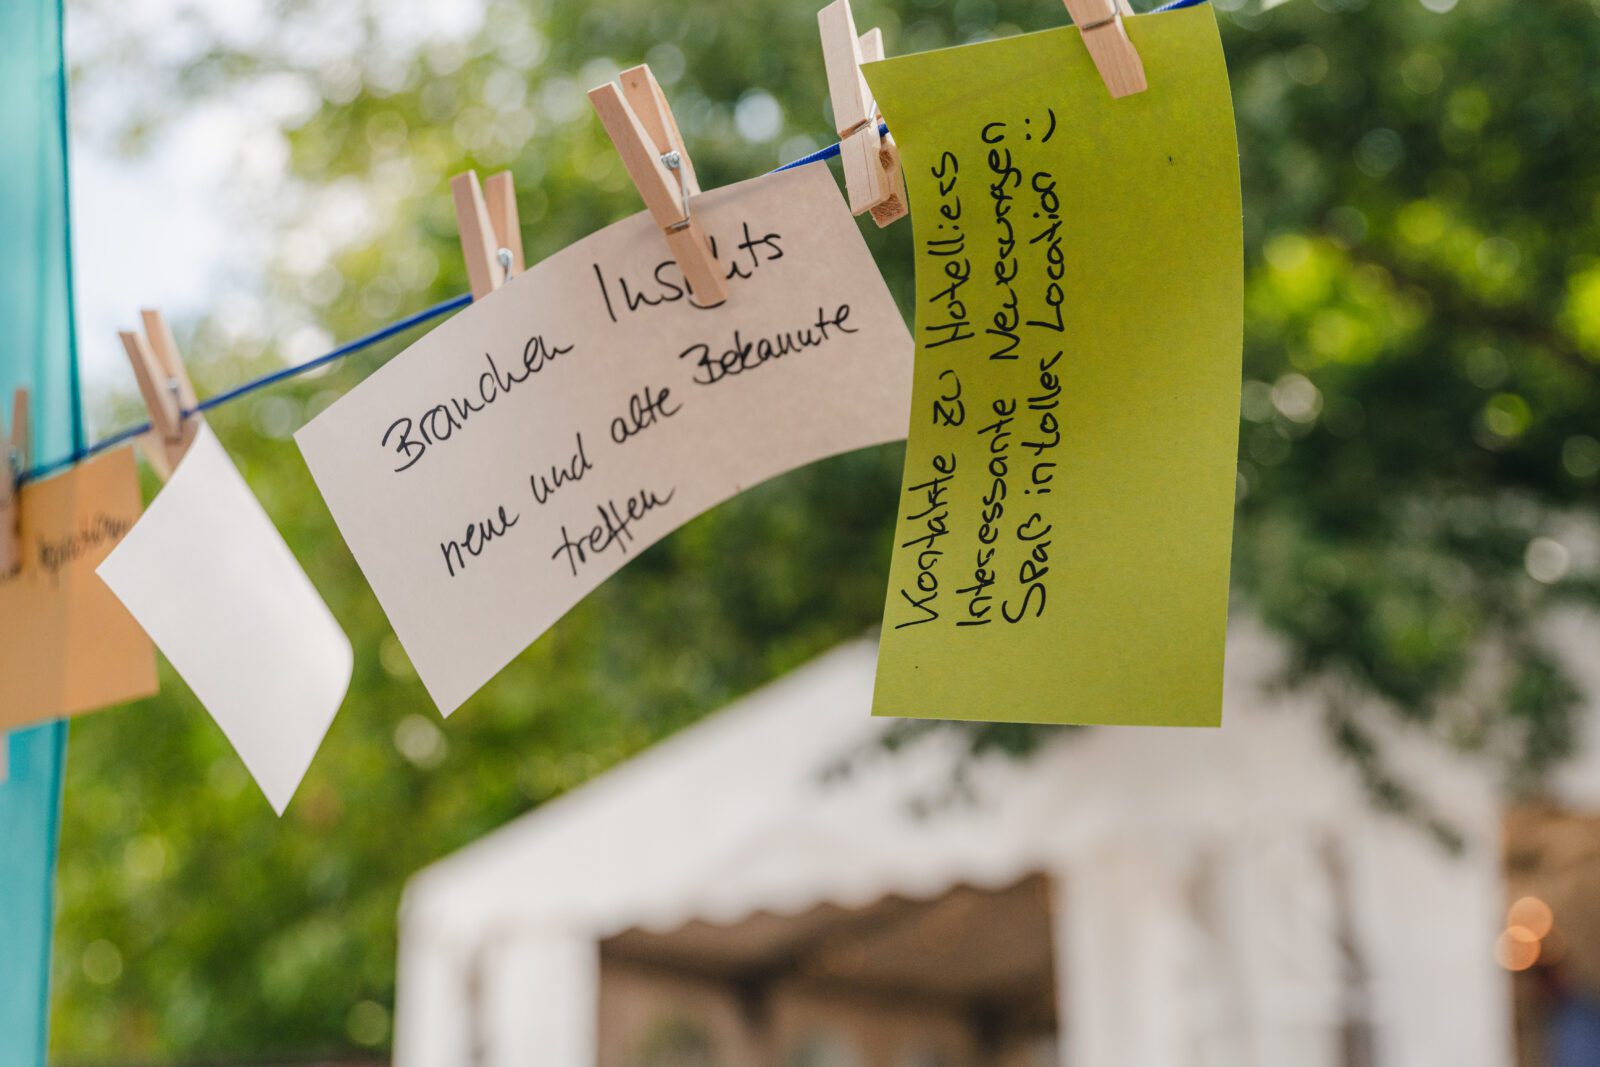 Branchen Insights
neue und alte Bekannte
treffen
Kontakte zu Hoteliers
Interessante Neuerungen
Spaß in toller Location :)